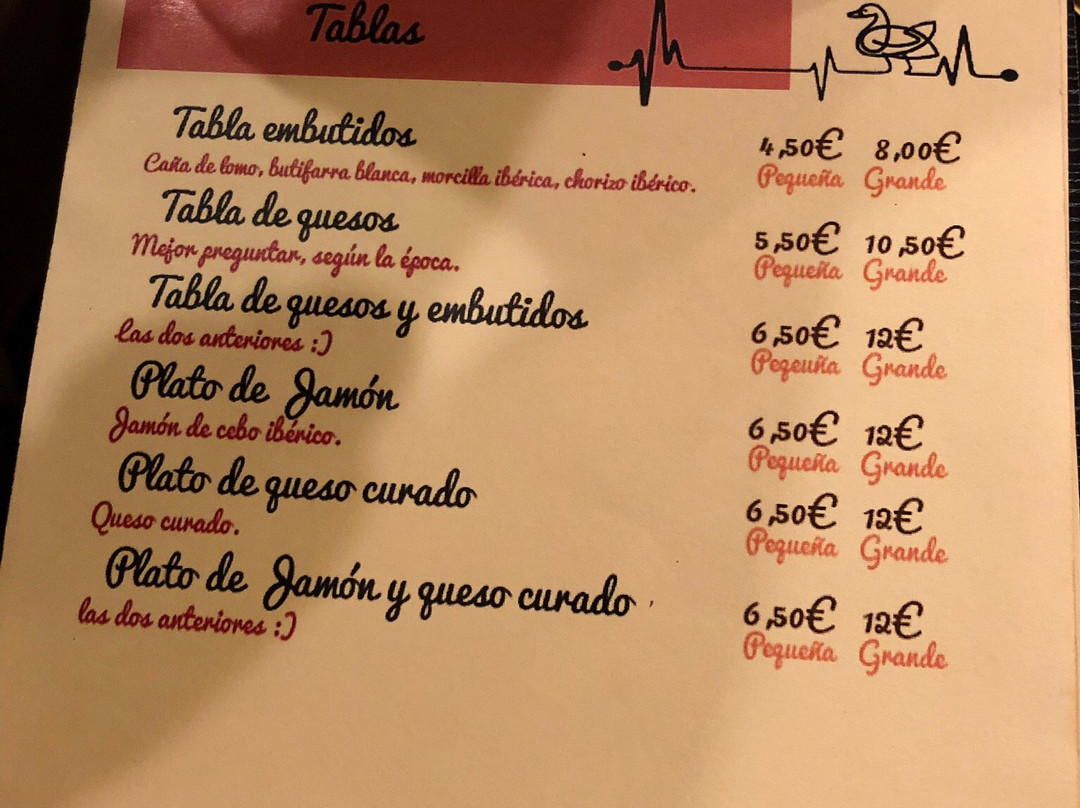 Tablas
Tabla embutidos
4,50€ 8,00€
Caña de lomo, butifarra blanca, morcilla ibérica, chorizo ibérico.
Pequeña Grande
Tabla de quesos
5,50€ 10,50€
Mejor preguntar, según la época.
Pequeña Grande
Tabla de quesos y embutidos
6,50€ 12€
las dos anteriores :)
Peqeuña Grande
Plato de Jamón
6,50€ 12€
Jamón de cebo ibérico.
Pequeña Grande
Plato de queso curado
6,50€ 12€
Queso curado.
Pequeña Grande
Plato de Jamón y queso curado
6,50€ 12€
las dos anteriores :)
Pequeña Grande